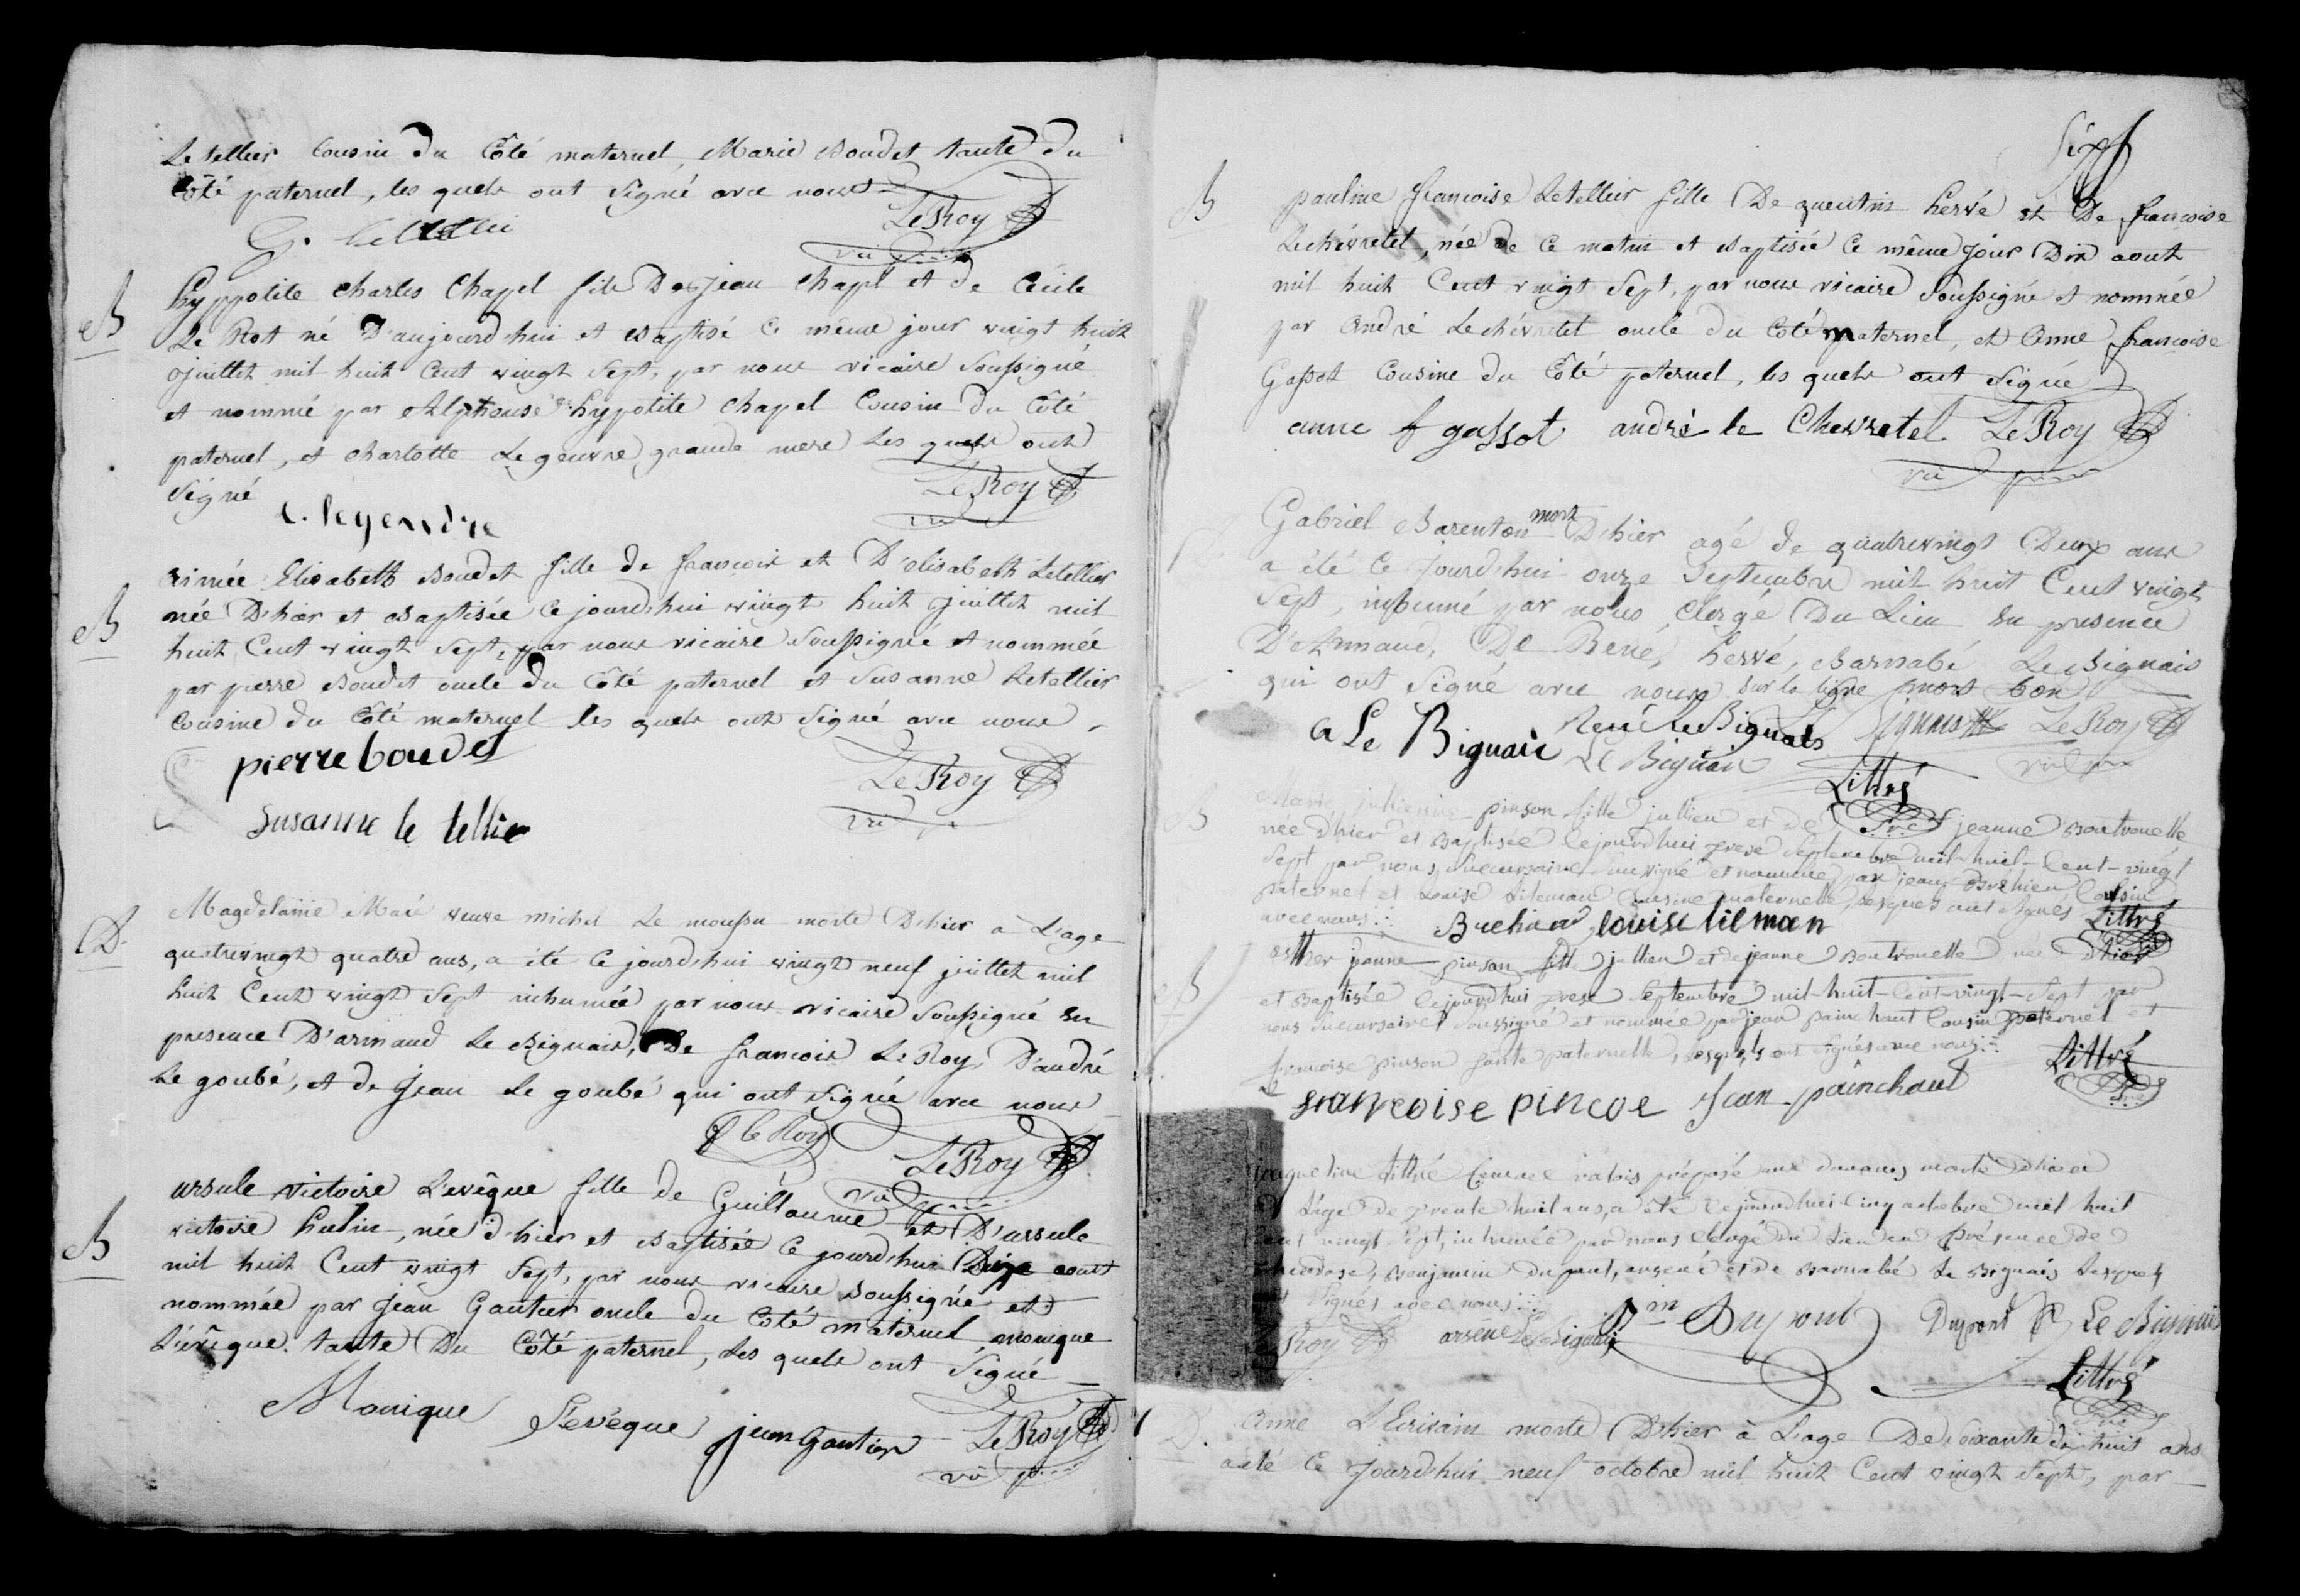 Letellier Cousin du Côté maternel, Marie Boudet tante du
Côté paternel, les quels ont signé avec nous
LeRoy
G. letellier
vic
B
hyppolite charles Chapel fils De jean Chapel et de Cécile
Le Rot né D'aujourd'hui et Baptisé Ce même jour vingt huit
juillet mil huit Cent vingt Sept, par nous vicaire Soussigné
et nommé par Alphonse hypolite Chapel Cousin du Côté
paternel, et Charlotte Legeuvre grande mere les quels ont
Signé
LeRoy
C. legendre
vic
B
aimée Elisabeth Boudet fille de francois et D'elisabeth Letellier
née D'hier et Baptisée Ce jourd'hui vingt huit juillet mil
huit Cent vingt Sept, par nous vicaire Soussigné et nommée
par pierre Boudet oncle du Côté paternel et Susanne Letellier
Cousine du Côté maternel les quels ont Signé avec nous
pierre boudet
LeRoy
vic
Susanne le tellier
D
Magdelaine Macé veuve michel Le moussu morte D'hier à L'age
quatrevingt quatre ans, a été Ce jourd'hui vingt neuf juillet mil
huit Cent vingt Sept inhumée par nous vicaire Soussigné en
presence D'armand Le Bignais, De francois LeRoy, D'andré
Le goubé, et de jean Le goubé qui ont Signé avec nous
f le Roy
LeRoy
vic
B
ursule victoire L'evêque fille de Guillaume et D'ursule
victoire hulin, née d'hier et Baptisée Ce jourd'hui aout
mil huit Cent vingt Sept, par nous vicaire Soussigné et
nommée par jean Gautier oncle du Côté maternel, monique
L'evêque tante Du Côté paternel, Les quels ont Signé
Monique Levêque jean Gautier LeRoy
vic
Six
B
pauline francoise Letellier fille De quentin hervé et De francoise
Lechévretel, née de Ce matin et Baptisée Ce même jour Dix aout
mil huit Cent vingt Sept, par nous vicaire Soussigné et nommée
par André Lechévretel oncle du Côté maternel, et Anne francoise
Gassot Cousine du Côté paternel, les quels ont Signé
anne f gassot andré le Chevretel LeRoy
vic
Gabriel Barenton mort D'hier agé de quatrevingt Deux ans
a été Ce jourd'hui onze Septembre mil huit Cent vingt
Sept, inhumé par nous, Clergé Du Lieu en presence
D'Armand, De René, hervé, Barnabé Le Bignais
qui ont Signé avec nous. Sur la ligne mort bon
a Le Bignais René Le Bignais LeRoy
Le Bignais
vic
Littré
B
Marie jullienne pinson fille jullien et de jeanne Boutrouelle
née d'hier et Baptisée Cejourd'hui treze Septembre mil-huit-Cent-vingt
Sept par nous Succursaire Soussigné et nommée par jean Bréhier Cousin
paternel et Louise Lileman Cousine maternelle, Lesquels ont Signés
avec nous
Littré
Brehier louise lileman
B
esther jeanne pinson fille jullien et de jeanne Boutrouelle née d'hier
et Baptisée Cejourd'hui treze Septembre mil-huit-Cent-vingt-Sept par
nous Succursaire Soussigné et nommée par jean painchaut Cousin paternel et
francoise pinson tante paternelle, Lesquels ont Signés avec nous
Littré
francoise pincon Jean painchaut
jacqueline Littré préposé aux douanes morte d'hier
L'age de trente huit ans, a été Cejourd'hui Cinq octobre mil huit
Cent vingt Sept, inhumée par nous Clergé du Lieu en présence de
Benjamin Dupont, arsene et de Barnabé Le Bignais Lesquels
Signés avec nous
Roy arsene Le Bignais Dupont Dupont Le Bignais
Littré
D.
Anne L'Ecrivain morte D'hier à L'age De Soixante dix huit ans
a été Ce jourd'hui neuf octobre mil huit Cent vingt Sept, par